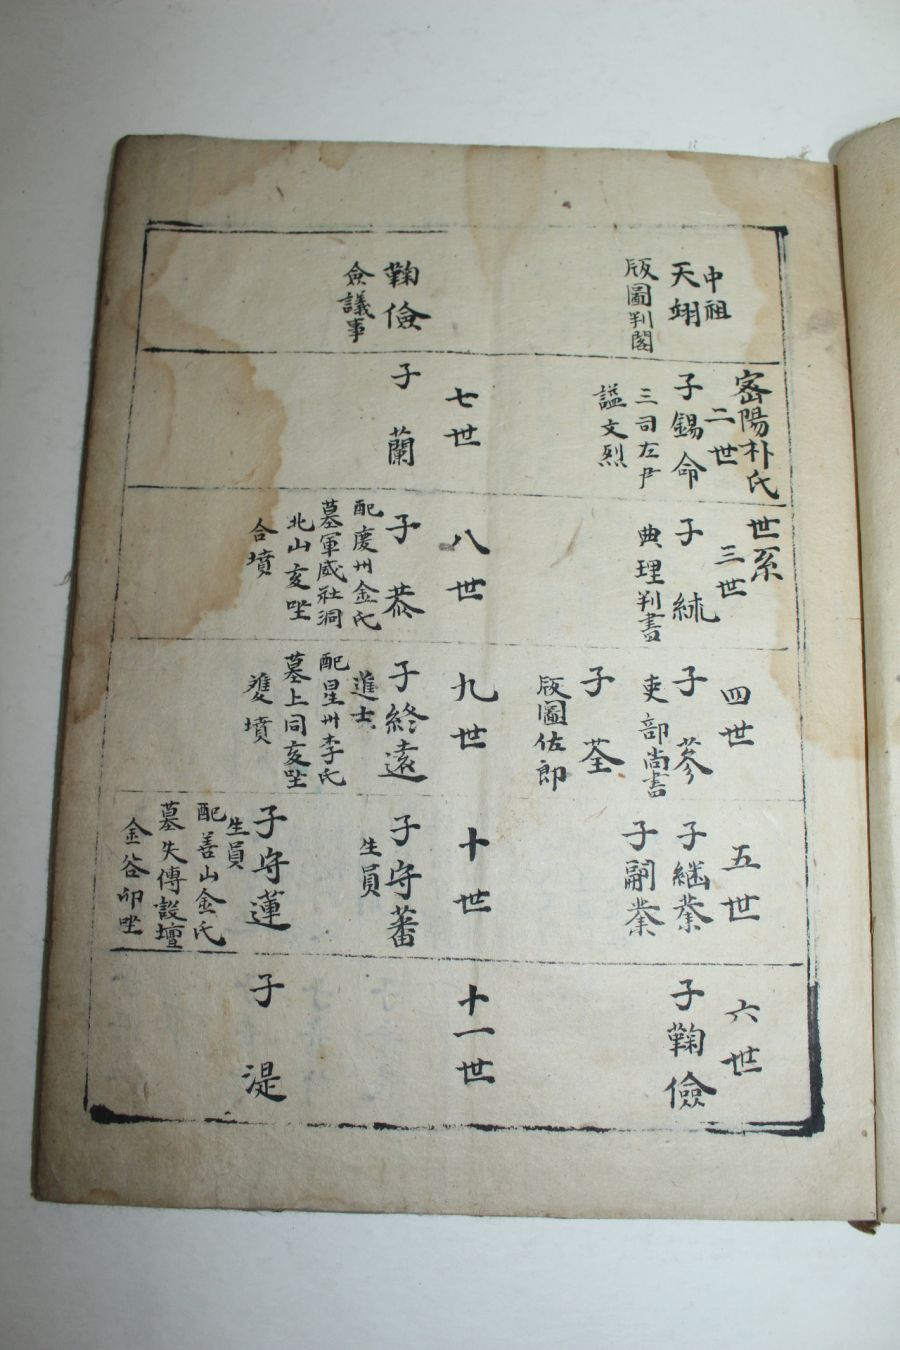 密陽朴氏世系
中祖
天翊
版圖判閣
二世
子錫命
三司左尹
謚文烈
三世
子絿
典理判書
四世
子蔘
吏部尚書
子荃
版圖佐郎
五世
子継蓁
子嗣蓁
六世
子鞠儉
鞠儉
僉議事
七世
子蘭
八世
子恭
配慶州金氏
墓軍威社洞
北山亥坐
合墳
九世
子終遠
進士
配星州李氏
墓上同亥坐
雙墳
十世
子守蕃
生員
子守蓮
生員
配善山金氏
墓失傳設壇
金谷卯坐
十一世
子湜